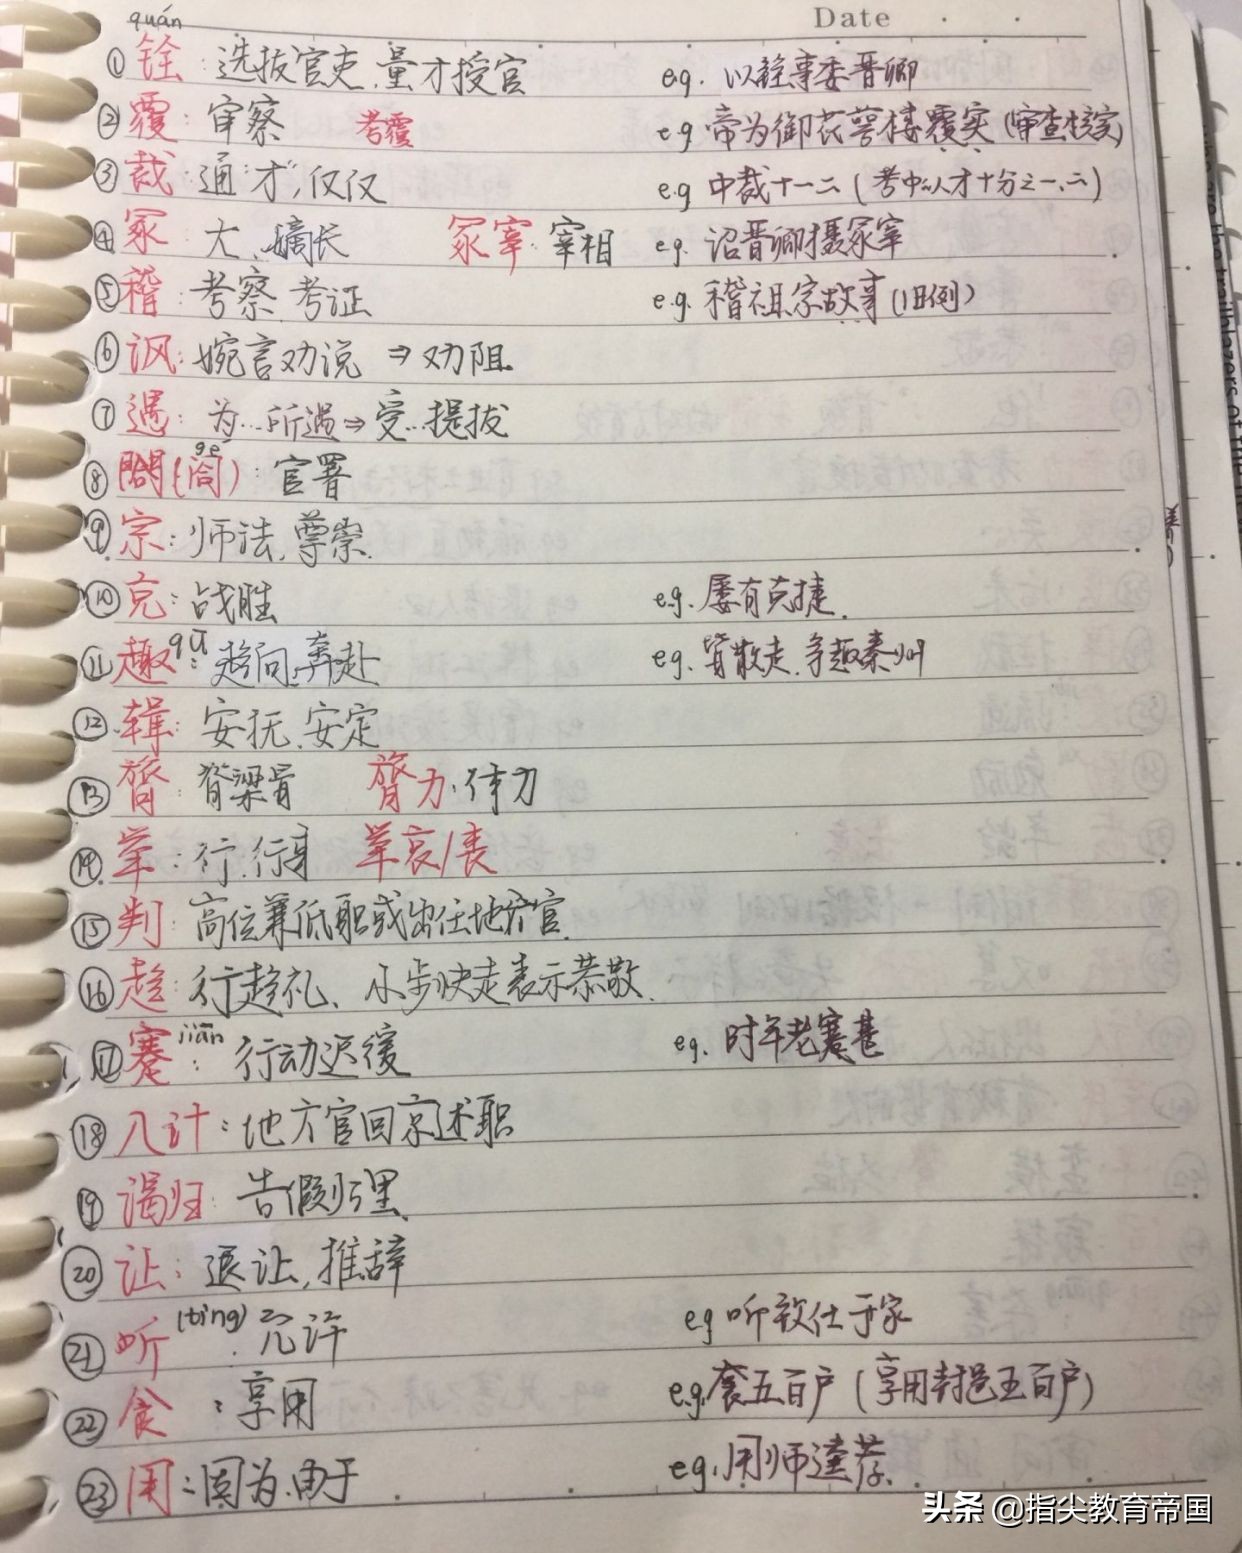 Date
quán
①铨：选拔官吏,量才授官 eg. 以铨事委晋卿
②覆：审察 考覆 eg 帝为御花萼楼覆实(审查核实)
③裁：通"才",仅仅 eg 中裁十一二(考中的人才十分之一、二)
④冢 大、嫡长 冢宰:宰相 eg. 诏晋卿摄冢宰
⑤稽：考察 考证 e.g. 稽祖宗故事(旧例)
⑥讽：婉言劝说 ⇒ 劝阻
⑦遇：为…所遇⇒受…提拔
gé
⑧閤(阁)：官署
⑨宗：师法,尊崇.
⑩克：战胜 e.g. 屡有克捷.
⑪趣qū：趋向,奔赴 e.g. 皆散走,争趣秦州
⑫辑：安抚、安定
⑬膂：脊梁骨 膂力:体力
⑭举：行.行事 举哀/丧
⑮判：高位兼低职或出任地方官.
⑯趋：行趋礼、小步快走表示恭敬.
⑰蹇jiǎn：行动迟缓 eg. 时年老蹇甚
⑱入计：地方官回京述职
⑲谒归：告假归里
⑳让：退让,推辞
㉑听(tìng)：允许 eg 听致仕于家
㉒食：享用 e.g.食五百户(享用封邑五百户)
㉓用：因为.由于 eg.用师逵荐.
头条 @指尖教育帝国
the trailblazers of the